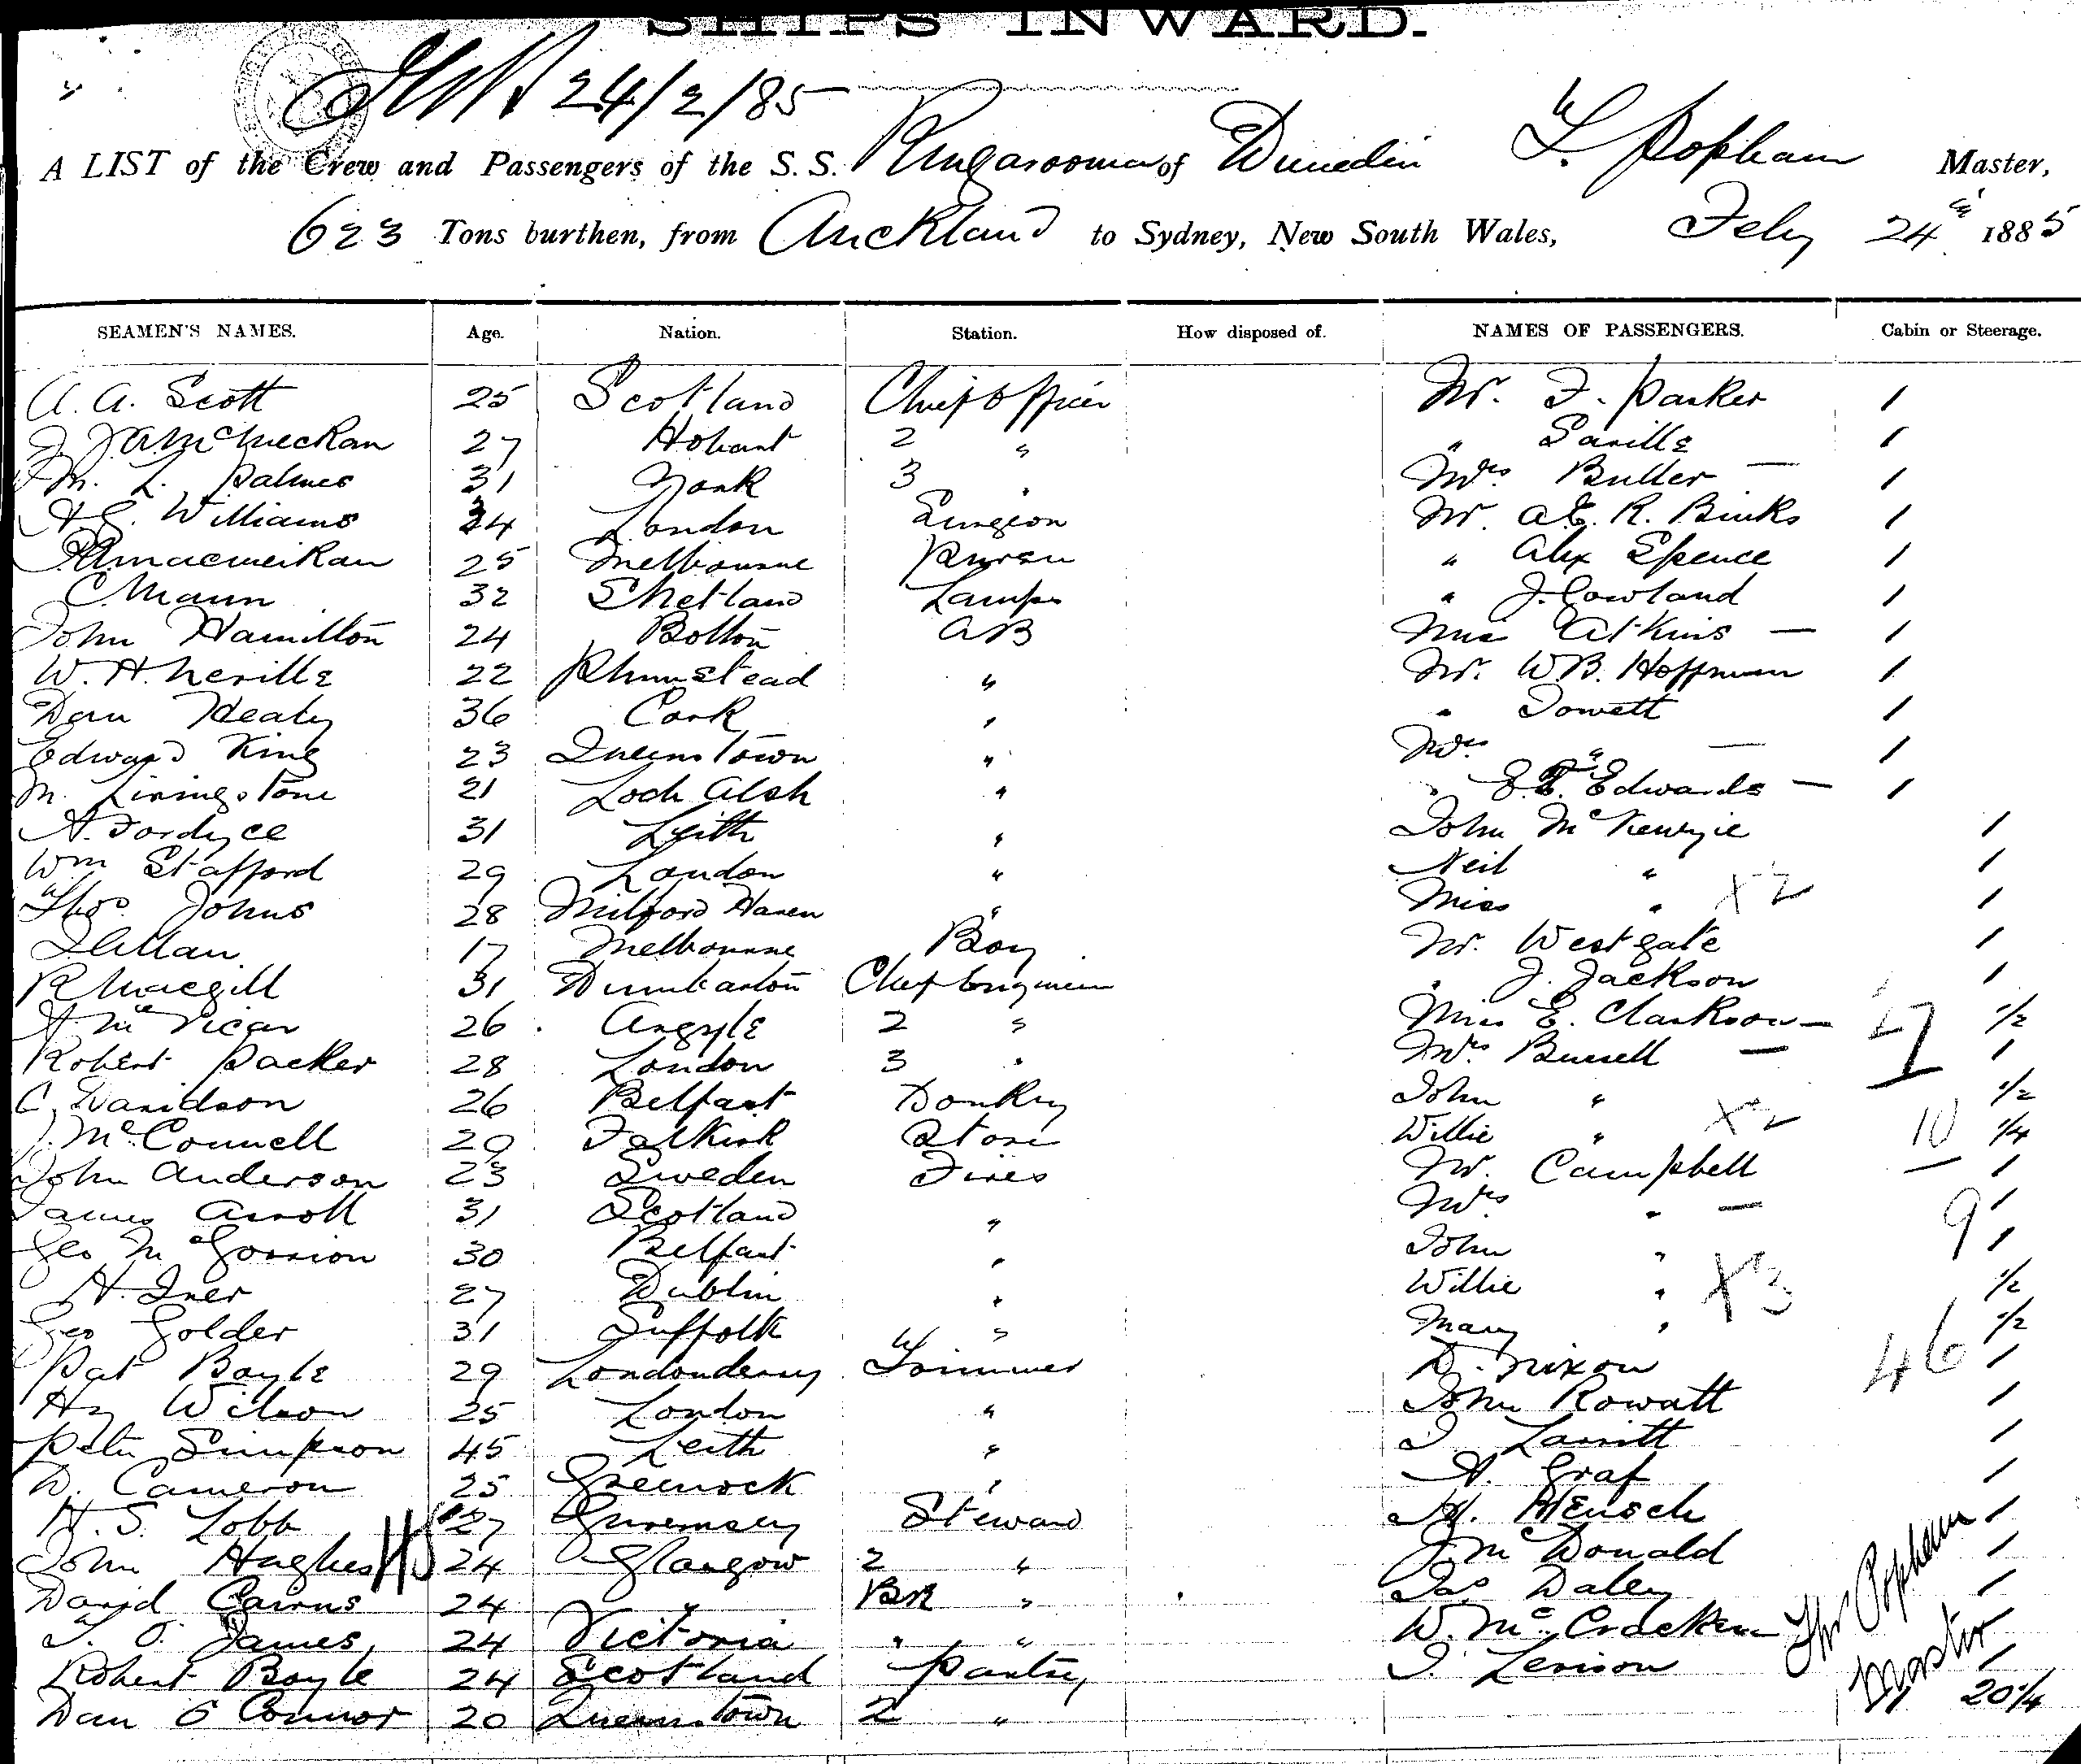 SHIPS INWARD.
24/2/85
A LIST of the Crew and Passengers of the S.S. Ringarooma of Dunedin T. Popham Master,
623 Tons burthen, from Auckland to Sydney, New South Wales, Feby 24th 1885
SEAMEN'S NAMES. Age. Nation. Station. How disposed of. NAMES OF PASSENGERS. Cabin or Steerage.
A. A. Scott 25 Scotland Chief Officer Mr. F. Parker 1
McMeckan 27 Hobart 2 " " Saville 1
M. L. Palmes 31 York 3 " Mrs Butler — 1
Williams 34 London Surgeon Mr. A.E. R. Binks 1
Macmeikan 25 Melbourne Purser " Alex Spence 1
C. Mann 32 Shetland Lamps " J. Cowland 1
John Hamilton 24 Bolton AB Miss Atkins — 1
W. H. Neville 22 Plumstead " Mr. W.B. Hoffman 1
Dan Healy 36 Cork " " Jowett 1
Edward King 23 Queenstown " Mrs " — 1
M. Livingstone 21 Loch Alsh " " E. T. Edwards — 1
A. Fordyce 31 Leith " John McKenzie 1
Wm Stafford 29 London " Neil " 1
Thos. Johns 28 Milford Haven " Miss " X2 1
Allan 17 Melbourne Boy Mr. Westgate 1
R Macgill 31 Dumbarton Chief Engineer " J. Jackson 1
A. McVicar 26 Argyle 2 " Miss E. Clarkson — 1/2
Robert Packer 28 London 3 " Mrs Burrell — 1
C. Davidson 26 Belfast Donkey John " 1/2
J. McConnell 29 Falkirk Store Willie " X2 10 1/4
John Anderson 23 Sweden Fires Mr. Campbell 1
James Arroll 31 Scotland " Mrs " — 1
Geo 30 Belfast " John " 9 1
H. 27 Dublin " Willie " X3 1/2
Geo Golder 31 Suffolk " Mary " 1/2
Pat Boyle 29 Londonderry Trimmer D. Nixon 46 1
Hy Wilson 25 London " John Rowatt 1
Peter Simpson 45 Leith " 1
D. Cameron 25 Greenock " A. Graf 1
H. S. Lobb 27 Guernsey Steward Mensch 1
John Hughes 45 24 Glasgow 2 " J. McDonald 1
David Cairns 24 " BR " Jas Daley 1
T. O. James 24 Victoria " " W. McCracken 1
Robert Boyle 24 Scotland Pantry Levison 1
Dan O Connor 20 Queenstown 2 " 20 1/4
Thos Popham
Master